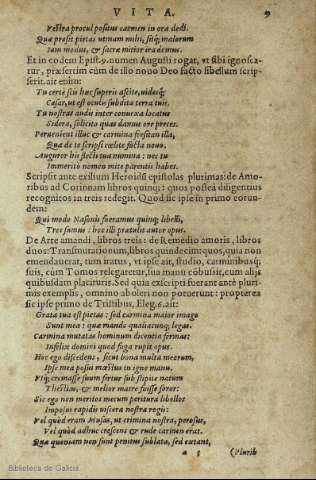 VITA. 9
Vestra procul positus carmen in ora dedi.
Quæ prosit pietas utinam mihi, sitq; malorum
Iam modus, & sacra mitior ira deus.
Et in eodem Epist. 9. numen Augusti rogat, ut sibi ignosca-
tur, præsertim cùm de illo nouo Deo facto libellum scrip-
serit. ait enim:
Tu certè scis hæc superis ascite, uidesq;
Cæsar, ut est oculis subdita terra tuis.
Tu nostras audis inter conuexa locatus
Sidera, sollicito quas damus ore preces.
Perueniant illuc & carmina forsitan illa,
Quæ de te scripsi cœlite facta nouo.
Auguror his flecti tua numina: nec tu
Immeritò nomen mite parentis habes.
Scripsit ante exilium Heroidũ epistolas plurimas: de Amo-
ribus ad Corinnam libros quinq;: quos posteà diligentius
recognitos in treis redegit. Quod sic ipse in primo eorun-
dem:
Qui modo Nasonis fueramus quinq; libelli,
Tres sumus: hoc illi prætulit autor opus.
De Arte amandi, libros treis: de Remedio amoris, libros
duos: Transmutationum, libros quindecim: quos, quia non
emendauerat, tum iratus, ut ipse ait, studio, carminibusq;
suis, cùm Tomos relegaretur, sua manu cõbussit, cum alijs
quibusdam placituris. Sed quia exscripti fuerant antè pluri-
mis exemplis, omnino aboleri non potuerunt: propterea
sic ipse primo de Tristibus, Eleg. 6. ait:
Grata tua est pietas: sed carmina maior imago
Sunt mea: quæ mando qualiacunq; legas.
Carmina mutatas hominum dicentia formas:
Infelix domini quod fuga rupit opus.
Hæc ego discedens, sicut bona multa meorum,
Ipse mea posui mœstus in igne manu.
Vtq; cremasse suum fertur sub stipite natum
Thestias, & melior matre fuisse soror:
Sic ego non meritos mecum peritura libellos
Imposui rapidis uiscera nostra rogis:
Vel quòd eram Musas, ut crimina nostra, perosus,
Vel quòd adhuc crescens & rude carmen erat.
Quæ quoniam non sunt penitus sublata, sed extant,
a 5 (Plurib
Biblioteca de Galicia